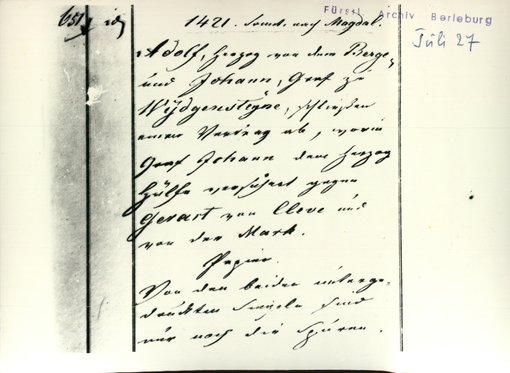 Fürstl. Archiv Berleburg
Juli 27
651
1421. Sonnt. nach Magdal.
Adolf, Herzog von dem Berge,
und Johann, Graf zu
Wijdgensteyne, schließen
einen Vertrag ab, worin
Graf Johann dem Herzog
Hülfe versichert gegen
Gerart von Cleve und
von der Mark.
Papier.
Von den beiden unterge-
druckten Siegeln sind
nur noch die Spuren.